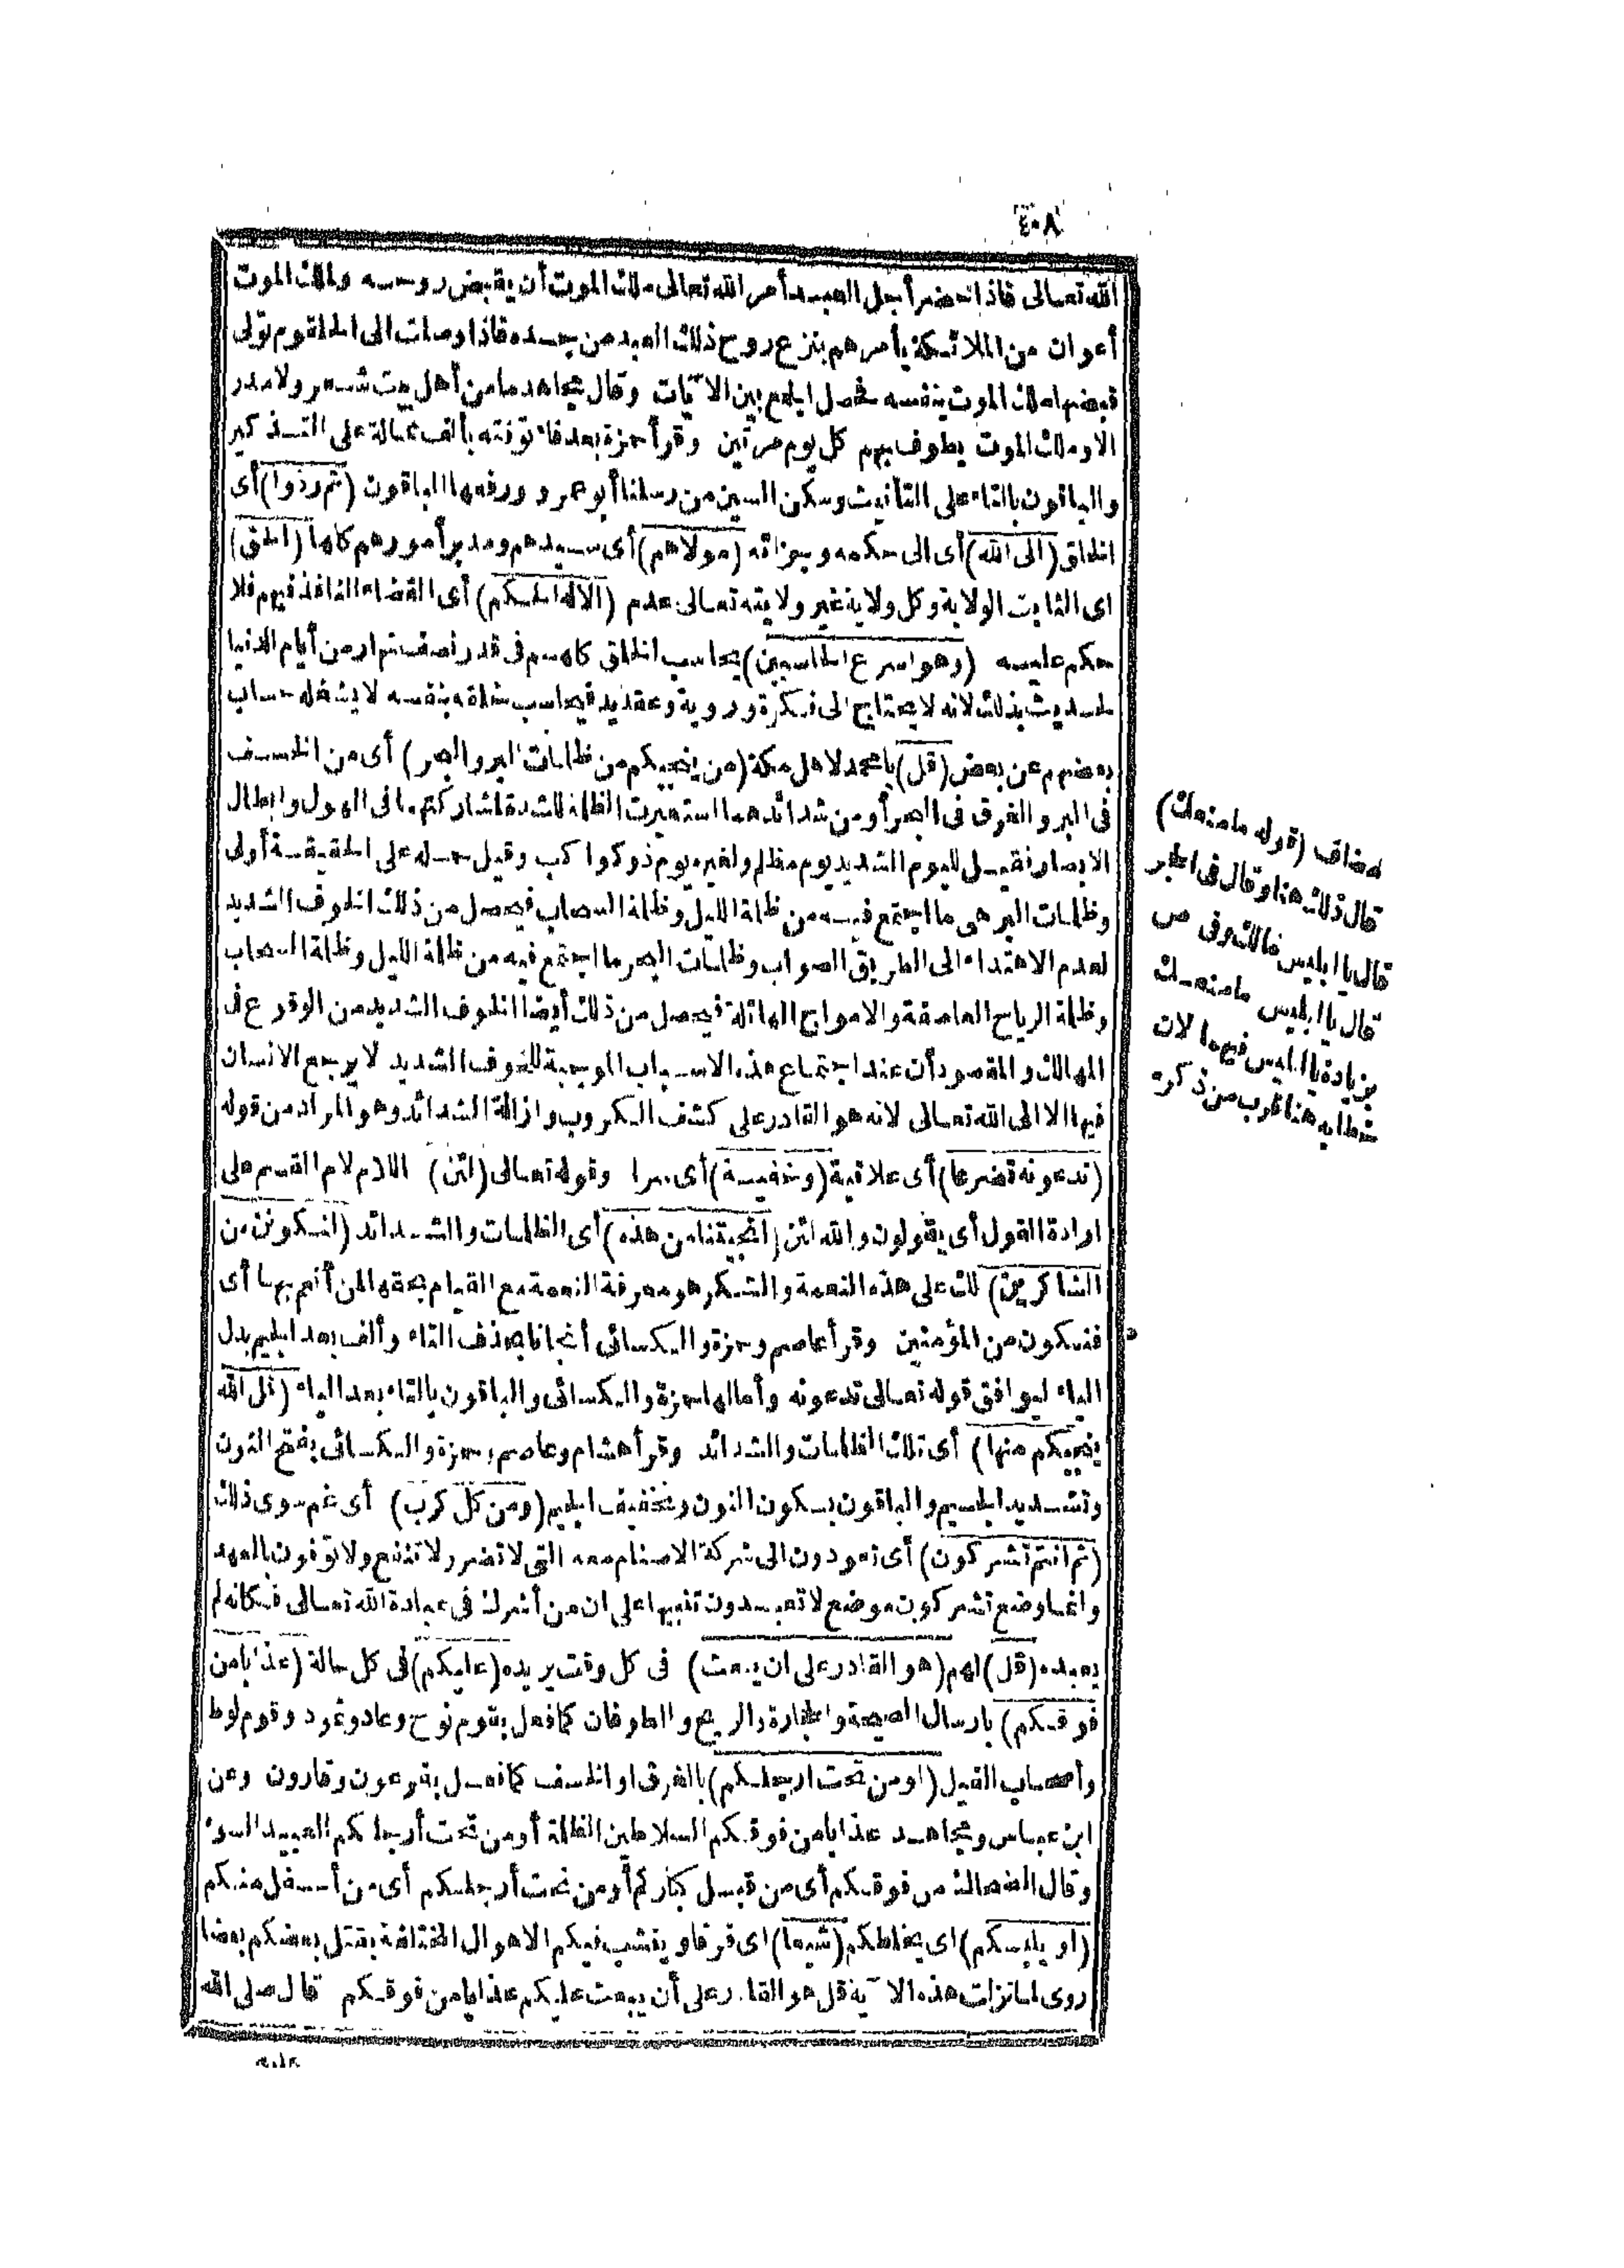 ٤٠٨
الله تعالى فاذا حضر أجل العبد أمر الله تعالى ملك الموت أن يقبض روحه ولملك الموت
أعوان من الملائكة يأمرهم بنزع روح ذلك العبد من جسده فاذا وصلت الى الحلقوم تولى
قبضها ملك الموت بنفسه فحصل الجمع بين الآيات وقال مجاهد ما من أهل بيت شعر ولا مدر
الا وملك الموت يطوف بهم كل يوم مرتين وقرأ حمزة بعد فاء توفته بألف ممالة على التذكير
والباقون بالتاء على التأنيث وسكن السين من رسلنا أبو عمرو ورفعها الباقون (ثم ردوا) أى
الخلق (الى الله) أى الى حكمه وجزائه (مولاهم) أى سيدهم ومدبر أمورهم كلها (الحق)
اى الثابت الولاية وكل ولاية غير ولايته تعالى عدم (الاله الحكم) أى القضاء النافذ فيهم فلا
حكم عليه (وهو اسرع الحاسبين) يحاسب الخلق كلهم فى قدر نصف نهار من أيام الدنيا
لحديث بذلك لانه لا يحتاج الى فكرة وروية وعقد يد فيحاسب خلقه بنفسه لا يشغله حساب
بعضهم عن بعض (قل) يا محمد لاهل مكة (من ينجيكم من ظلمات البر والبحر) أى من الخسف
فى البر والغرق فى البحر أو من شدائدهما استعيرت الظلمة للشدة لمشاركتهما فى الهول وابطال
الابصار فقيل لليوم الشديد يوم مظلم ولغيره يوم ذو كواكب وقيل حمله على الحقيقة أولى
وظلمات البر هى ما اجتمع فيه من ظلمة الليل وظلمة السحاب فيحصل من ذلك الخوف الشديد
لعدم الاهتداء الى الطريق الصواب وظلمات البحر ما اجتمع فيه من ظلمة الليل وظلمة السحاب
وظلمة الرياح العاصفة والامواج الهائلة فيحصل من ذلك أيضا الخوف الشديد من الوقوع فى
المهالك والمقصود أن عند اجتماع هذه الاسباب الموجبة للخوف الشديد لا يرجع الانسان
فيها الا الى الله تعالى لانه هو القادر على كشف الكروب وازالة الشدائد وهو المراد من قوله
(تدعونه تضرعا) أى علانية (وخفية) أى سرا وقوله تعالى (لئن) اللام لام القسم على
ارادة القول أى يقولون والله لئن (انجيتنا من هذه) أى الظلمات والشدائد (لنكونن من
الشاكرين) لك على هذه النعمة والشكر هو معرفة النعمة مع القيام بحقها لمن أنعم بها أى
فنكون من المؤمنين وقرأ عاصم وحمزة والكسائى أنجانا بحذف التاء وألف بعد الجيم بدل
الياء ليوافق قوله تعالى تدعونه وأمالها حمزة والكسائى والباقون بالتاء بعد الياء (قل الله
ينجيكم منها) أى تلك الظلمات والشدائد وقرأ هشام وعاصم وحمزة والكسائى بفتح النون
وتشديد الجيم والباقون بسكون النون وتخفيف الجيم (ومن كل كرب) أى غم سوى ذلك
(ثم انتم تشركون) أى تعودون الى شركة الاصنام معه التى لا تضر ولا تنفع ولا توفون بالعهد
وانما وضع تشركون موضع لا تعبدون تنبيها على ان من أشرك فى عبادة الله تعالى فكانه لم
يعبده (قل) لهم (هو القادر على ان يبعث) فى كل وقت يريده (عليكم) فى كل حالة (عذابا من
فوقكم) بارسال الصيحة والحجارة والريح والطوفان كما فعل بقوم نوح وعاد وثمود وقوم لوط
وأصحاب الفيل (او من تحت ارجلكم) بالغرق او الخسف كما فعل بفرعون وقارون وعن
ابن عباس ومجاهد عذابا من فوقكم السلاطين الظلمة أو من تحت أرجلكم العبيد السوء
وقال الضحاك من فوقكم أى من قبل كباركم أو من تحت أرجلكم أى من أسفل منكم
(او يلبسكم) اى يخلطكم (شيعا) اى فرقا وينشب فيكم الاهوال المختلفة بقتل بعضكم بعضا
روى لما نزلت هذه الآية قل هو القادر على أن يبعث عليكم عذابا من فوقكم قال صلى الله
مضاف (قوله ما منعك)
قال ذلك هنا وقال فى الحجر
قال يا ابليس مالك وفى ص
قال يا ابليس ما منعك
بزيادة يا ابليس فيهما لان
خطابه هنا قرب من ذكره